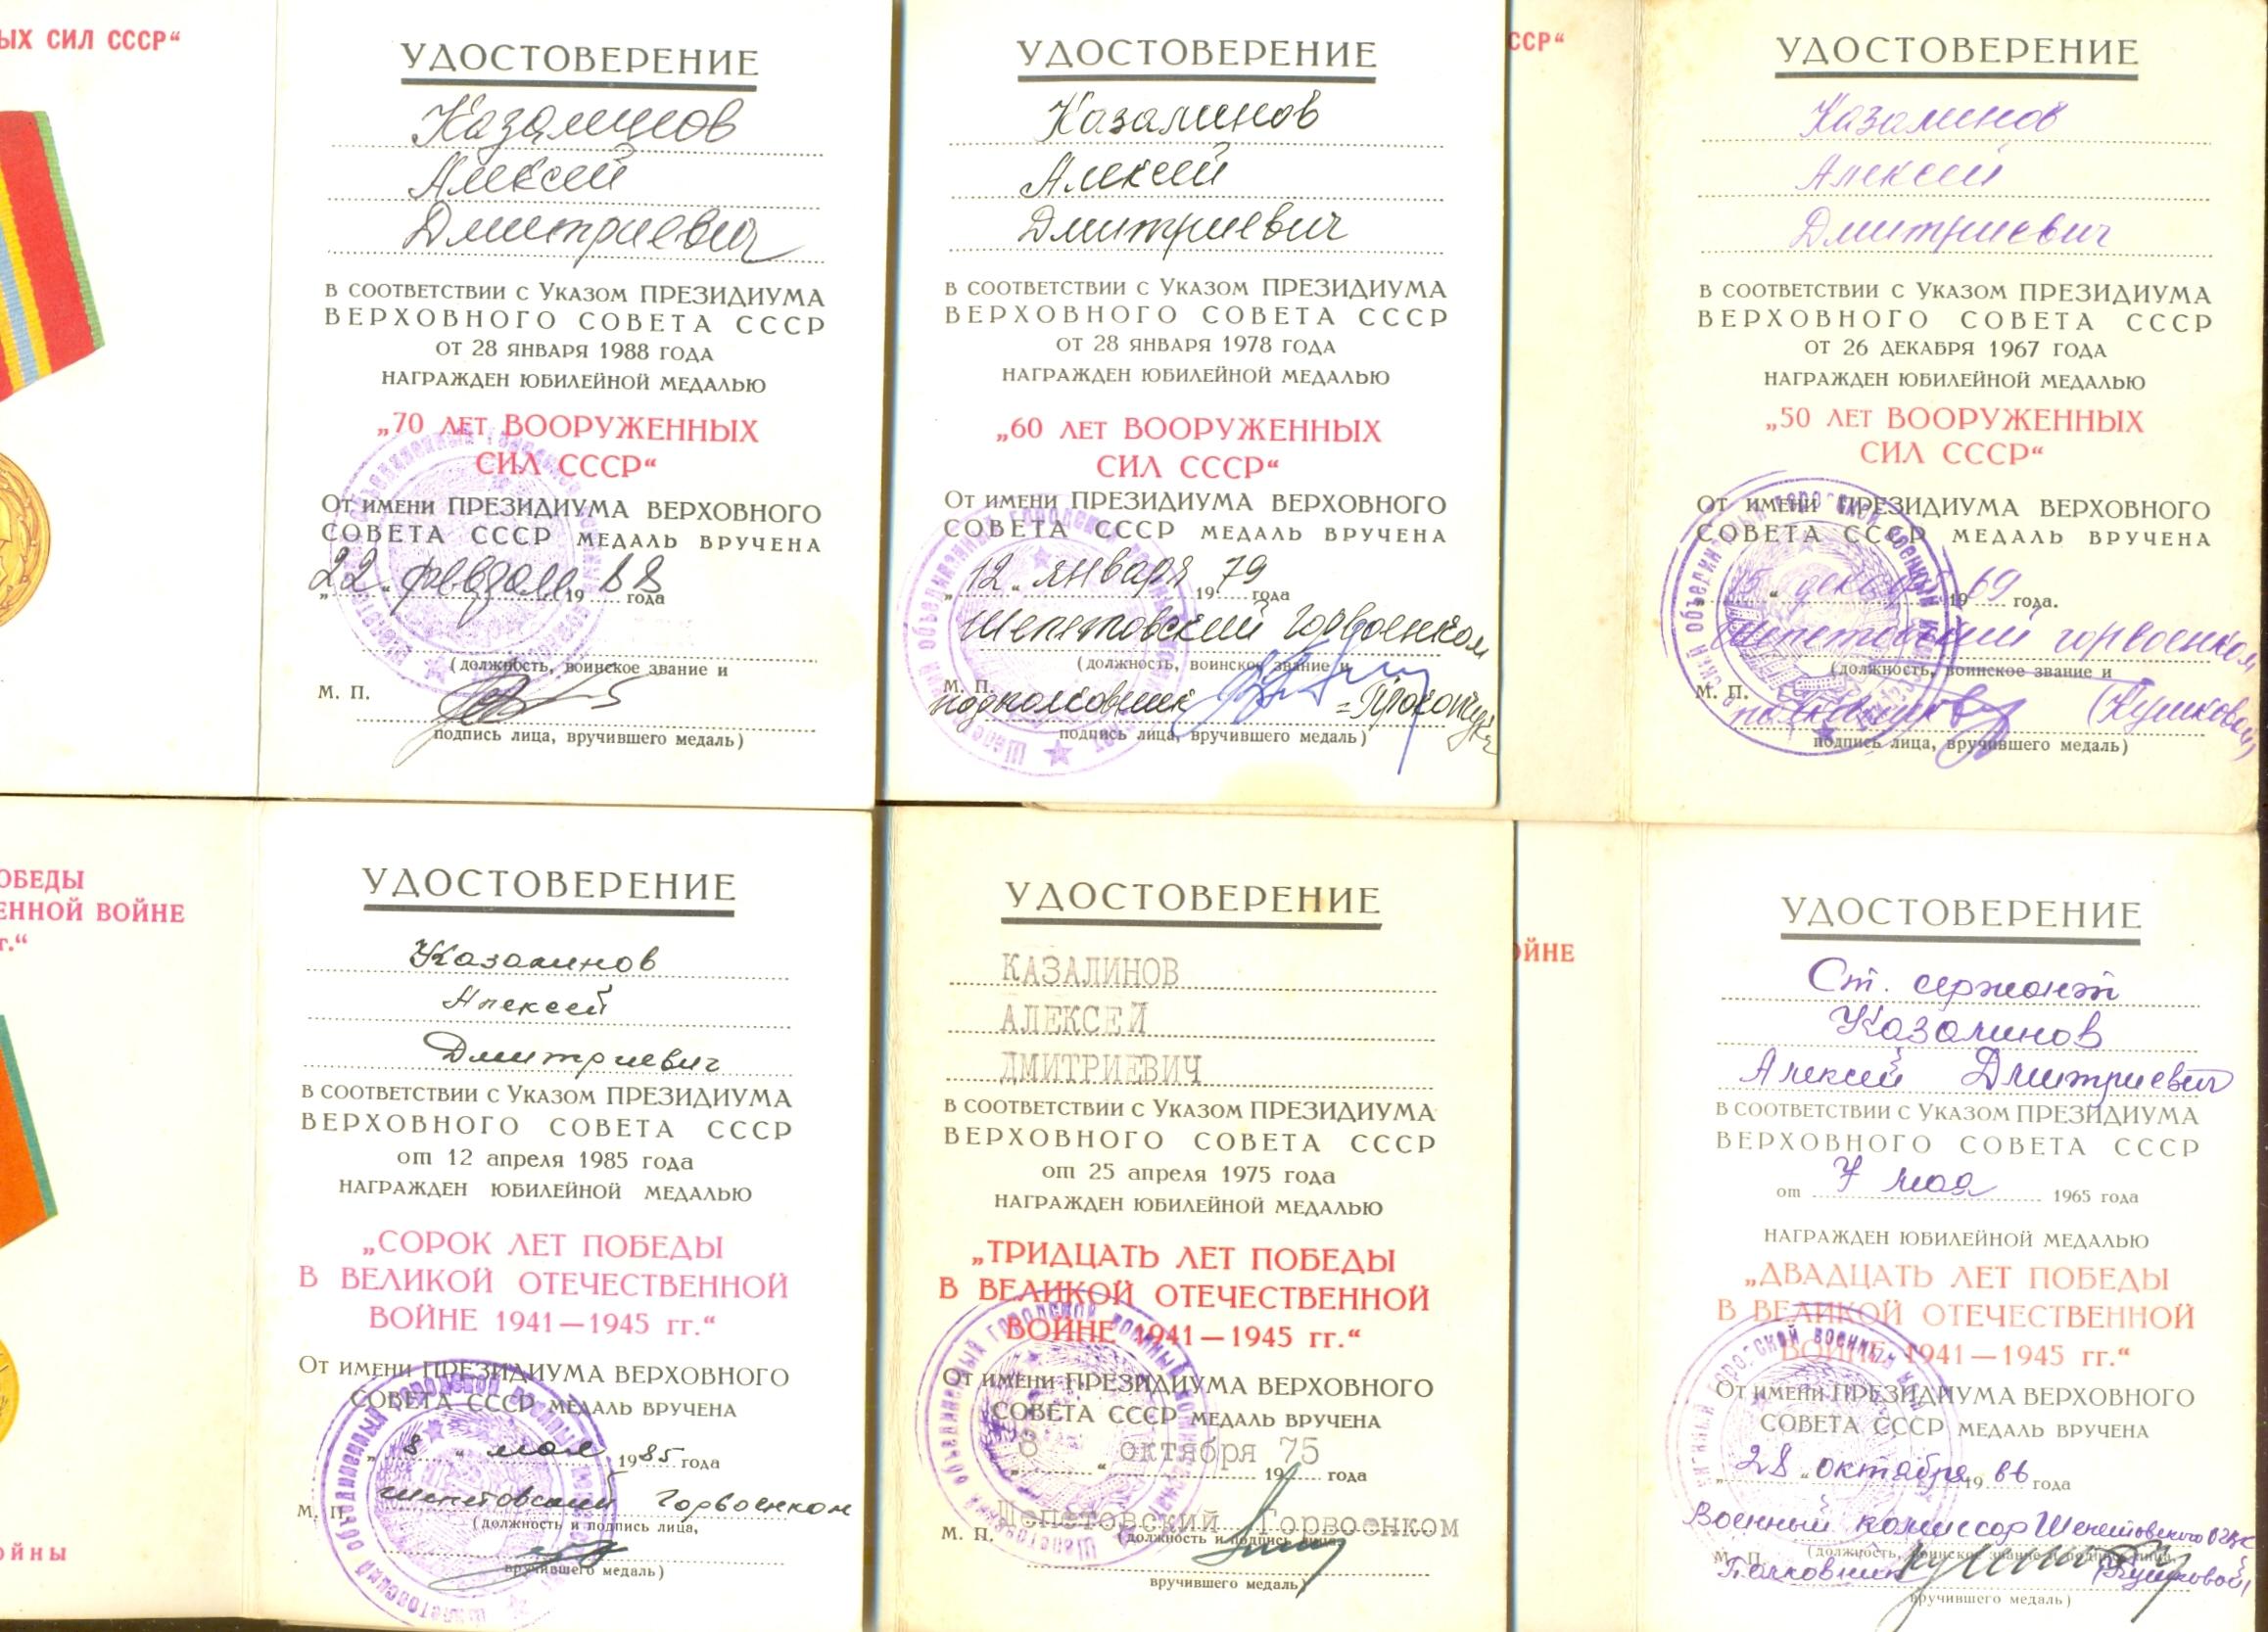 ЫХ СИЛ СССР“
УДОСТОВЕРЕНИЕ
Казалинов
Алексей
Дмитриевич
В СООТВЕТСТВИИ С УКАЗОМ ПРЕЗИДИУМА
ВЕРХОВНОГО СОВЕТА СССР
ОТ 28 ЯНВАРЯ 1988 ГОДА
НАГРАЖДЕН ЮБИЛЕЙНОЙ МЕДАЛЬЮ
„70 ЛЕТ ВООРУЖЕННЫХ
СИЛ СССР“
ОТ ИМЕНИ ПРЕЗИДИУМА ВЕРХОВНОГО
СОВЕТА СССР МЕДАЛЬ ВРУЧЕНА
„22“ февраля 1988 года
(должность, воинское звание и
М. П.
подпись лица, вручившего медаль)
УДОСТОВЕРЕНИЕ
Казалинов
Алексей
Дмитриевич
В СООТВЕТСТВИИ С УКАЗОМ ПРЕЗИДИУМА
ВЕРХОВНОГО СОВЕТА СССР
ОТ 28 ЯНВАРЯ 1978 ГОДА
НАГРАЖДЕН ЮБИЛЕЙНОЙ МЕДАЛЬЮ
„60 ЛЕТ ВООРУЖЕННЫХ
СИЛ СССР“
ОТ ИМЕНИ ПРЕЗИДИУМА ВЕРХОВНОГО
СОВЕТА СССР МЕДАЛЬ ВРУЧЕНА
„12“ января 1979 года
Шепетовский горвоенком
(должность, воинское звание и
М. П.
подполковник
подпись лица, вручившего медаль)
ССР“
УДОСТОВЕРЕНИЕ
Казалинов
Алексей
Дмитриевич
В СООТВЕТСТВИИ С УКАЗОМ ПРЕЗИДИУМА
ВЕРХОВНОГО СОВЕТА СССР
ОТ 26 ДЕКАБРЯ 1967 ГОДА
НАГРАЖДЕН ЮБИЛЕЙНОЙ МЕДАЛЬЮ
„50 ЛЕТ ВООРУЖЕННЫХ
СИЛ СССР“
ОТ ИМЕНИ ПРЕЗИДИУМА ВЕРХОВНОГО
СОВЕТА СССР МЕДАЛЬ ВРУЧЕНА
„15“ декабря 1969 года.
Шепетовский горвоенком
(должность, воинское звание и
М. П.
полковник (Кушковой)
подпись лица, вручившего медаль)
ОБЕДЫ
ЕННОЙ ВОЙНЕ
г.“
ОЙНЫ
УДОСТОВЕРЕНИЕ
Казалинов
Алексей
Дмитриевич
В СООТВЕТСТВИИ С УКАЗОМ ПРЕЗИДИУМА
ВЕРХОВНОГО СОВЕТА СССР
от 12 апреля 1985 года
НАГРАЖДЕН ЮБИЛЕЙНОЙ МЕДАЛЬЮ
„СОРОК ЛЕТ ПОБЕДЫ
В ВЕЛИКОЙ ОТЕЧЕСТВЕННОЙ
ВОЙНЕ 1941—1945 гг.“
ОТ ИМЕНИ ПРЕЗИДИУМА ВЕРХОВНОГО
СОВЕТА СССР МЕДАЛЬ ВРУЧЕНА
„8“ мая 1985 года
Шепетовский горвоенком
М. П.
(должность и подпись лица,
вручившего медаль)
УДОСТОВЕРЕНИЕ
КАЗАЛИНОВ
АЛЕКСЕЙ
ДМИТРИЕВИЧ
В СООТВЕТСТВИИ С УКАЗОМ ПРЕЗИДИУМА
ВЕРХОВНОГО СОВЕТА СССР
от 25 апреля 1975 года
НАГРАЖДЕН ЮБИЛЕЙНОЙ МЕДАЛЬЮ
„ТРИДЦАТЬ ЛЕТ ПОБЕДЫ
В ВЕЛИКОЙ ОТЕЧЕСТВЕННОЙ
ВОЙНЕ 1941—1945 гг.“
ОТ ИМЕНИ ПРЕЗИДИУМА ВЕРХОВНОГО
СОВЕТА СССР МЕДАЛЬ ВРУЧЕНА
„8“ октября 1975 года
Шепетовский Горвоенком
М. П.
(должность и подпись лица,
вручившего медаль)
ОЙНЕ
УДОСТОВЕРЕНИЕ
Ст. сержант
Казалинов
Алексей Дмитриевич
В СООТВЕТСТВИИ С УКАЗОМ ПРЕЗИДИУМА
ВЕРХОВНОГО СОВЕТА СССР
от 7 мая 1965 года
НАГРАЖДЕН ЮБИЛЕЙНОЙ МЕДАЛЬЮ
„ДВАДЦАТЬ ЛЕТ ПОБЕДЫ
В ВЕЛИКОЙ ОТЕЧЕСТВЕННОЙ
ВОЙНЕ 1941—1945 гг.“
ОТ ИМЕНИ ПРЕЗИДИУМА ВЕРХОВНОГО
СОВЕТА СССР МЕДАЛЬ ВРУЧЕНА
„28“ октября 1966 года
Военный комиссар Шепетовского ОГВК
(должность, воинское звание и подпись лица,
М. П.
Полковник (Кушковой)
вручившего медаль)